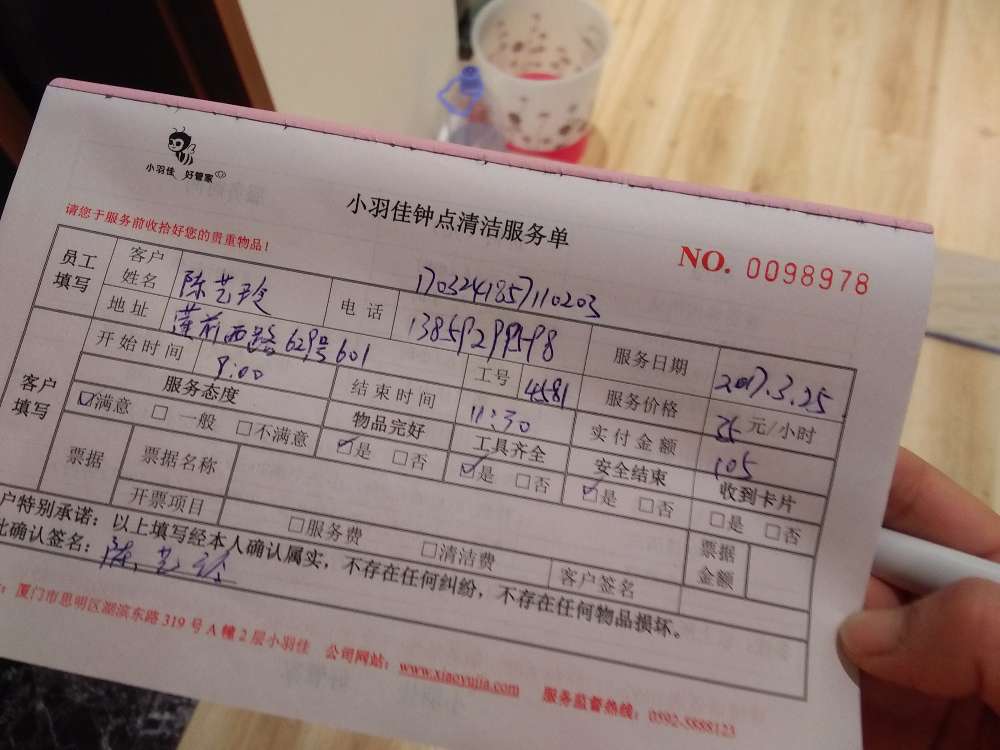 小羽佳 好管家
小羽佳钟点清洁服务单
请您于服务前收拾好您的贵重物品！
NO. 0098978
员工填写 客户姓名 陈艺玲 电话 1703241857110203 服务日期 2017.3.25
地址 莲前西路629号601 13859299598 服务价格 元/小时
开始时间 9:00 结束时间 11:30 工号 4581 实付金额 105
客户填写 服务态度 物品完好 工具齐全 安全结束 收到卡片
☑满意 □一般 □不满意 ☑是 □否 ☑是 □否 ☑是 □否 □是 □否
票据 票据名称 票据金额
开票项目 □服务费 □清洁费 客户签名
户特别承诺：以上填写经本人确认属实，不存在任何纠纷，不存在任何物品损坏。
此确认签名：陈艺玲
：厦门市思明区湖滨东路319号A幢2层小羽佳 公司网站：www.xiaoyujia.com 服务监督热线：0592-5888123